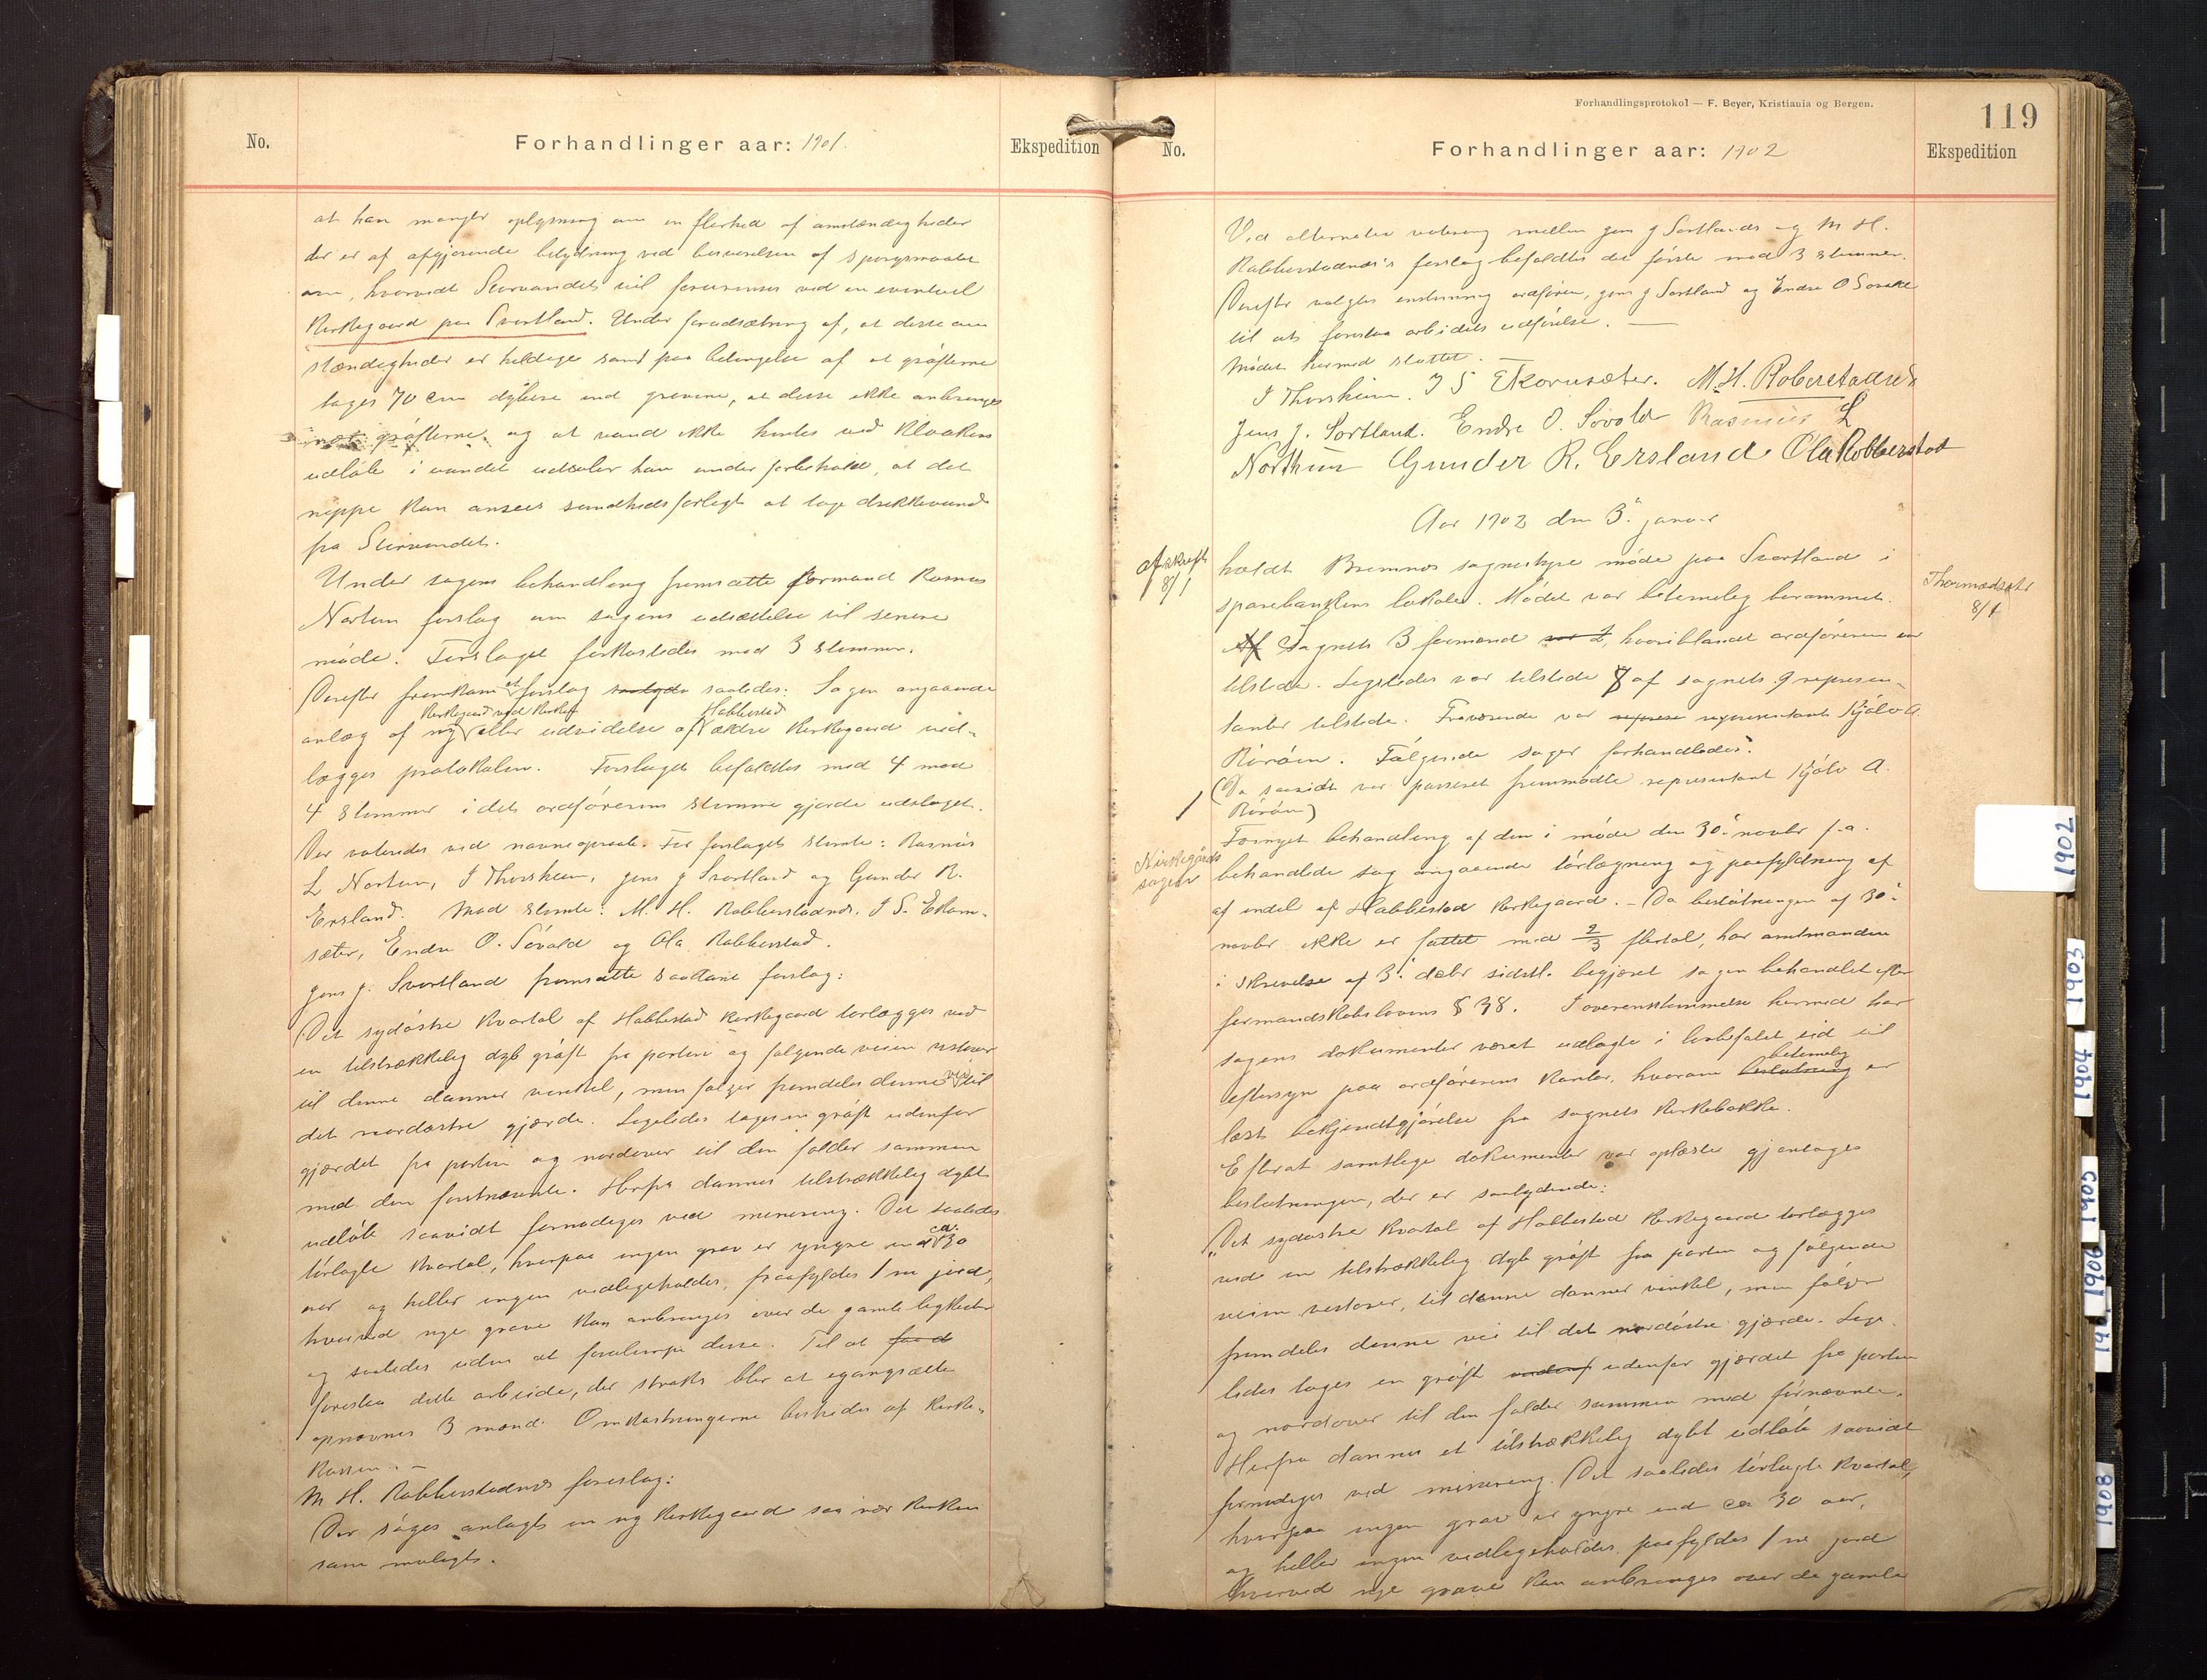 No.
Forhandlinger aar: 1901.
Ekspedition
at han mangler oplysning om en flerhed af omstændigheder
der er af afgjørende betydning ved besvarelsen af spørgsmaalet
om, hvorvidt Storvandet vil forurenses ved en eventuel
Kirkegaard paa Svortland. Under forudsætning af, at disse om
stændigheder er heldige samt paa betingelse af at grøfterne
tages 70 cm dybere end gravene, at disse ikke anbringes
grøfterne og at vand ikke hentes ved Kloakens
udløb i vandet udtaler han under forbehold, at det
neppe kan ansees sundhedsfarligt at tage drikkevand
fra Storvandet.
Under sagens behandling fremsatte formand Rasmus
Nortun forslag om sagens udsættelse til senere
møde. Forslaget forkastedes med 3 stemmer.
Derefter fremkom et forslag saalydende saaledes: Sagen angaaende
Kirkegaard ved Kirken Habbestad
anlæg af ny eller udvidelse af ældre Kirkegaard ved-
lægges protokolen. Forslaget befaldtes med 4 mod
4 stemmer idet ordførerens stemme gjorde udslaget.
Der voteredes ved navneopraab. For forslaget stemte: Rasmus
L Nortun, I Thorsheim, Jens J Svortland og Gunder R.
Ersland. Mod stemte: M. H. Robberstadnes. J S. Ekorn-
sæter, Endre O. Søvold og Ola Robberstad.
Jens J. Svortland fremsatte saadant forslag:
Det sydøstre Kvartal af Habbestad Kirkegaard tørlægges ved
en tilstrækkelig dyb grøft fra porten og følgende veien vestover
til denne danner vinkel, men følger fremdeles denne vei til
det nordøstre gjærde. Ligeledes tages en grøft udenfor
gjærdet fra porten og nordover til den falder sammen
med den førstnævnte. Herfra dannes tilstrækkelig dybt
udløb saavidt fornødiges ved minering. Det saaledes
tørlagte Kvartal, hvorpaa ingen grav er yngre end ca. 30
aar og heller ingen vedligeholdes, paafyldes 1 m jord,
hvorved nye grave kan anbringes over de gamle ligkister
og saaledes uden at forulempe disse. Til at
forestaa dette arbeide, der straks blir at igangsætte
opnævnes 3 mænd. Omkostningerne bestrides af Kirke-
kassen. —
M H. Robberstadnes foreslag:
Der søges anlagt en ny Kirkegaard saa nær Kirken
som muligt.
Forhandlingsprotokol — F. Beyer, Kristiania og Bergen.
119
No.
Forhandlinger aar: 1902
Ekspedition
Ved alternativ votering mellem Jens J Svortlands og M H.
Robberstadnes's forslag befaldtes det første mod 3 stemmer.
Derefter valgtes enstemmig ordføreren, Jens J Svortland og Endre O Søvold
til at forestaa arbeidets udførelse. —
Mødet hermed sluttet. —
I Thorsheim. J S Ekornsæter. M. H. Roberstadnes
Jens J. Sortland. Endre O. Søvold Rasmus L
Northun Gunder R. Ersland Ola Robberstad
Aar 1902 den 3. januar
afskrift
8/1
holdt Bremnes sognestyre møde paa Svortland i
sparebankens lokale. Mødet var betimelig berammet.
Thormodsæter
8/1
Af Sognets 3 formænd var 2, hvoriblandt ordføreren var
tilstede. Ligeledes var tilstede 8 af sognets 9 represen-
tanter tilstede. Fraværende var represe representant Kjølv A.
Rørøen. Følgende sager forhandledes:
(Da saavidt var passeret fremmødte representant Kjølv A.
Rørøen)
1
Kirkegårds
sagen
Fornyet behandling af den i møde den 30. novbr f.a.
behandlede sag angaaende tørlægning og paafyldning af
af endel af Habbestad Kirkegaard. — Da beslutningen af 30.
novbr ikke er fattet med 2/3 flertal, har amtmanden
i skrivelse af 3. debr sidstl. begjæret sagen behandlet efter
formandskabslovens § 38. I overensstemmelse hermed har
sagens dokumenter været udlagte i lovbefalet tid til
betimelig
eftersyn paa ordførerens kontor, hvorom beslutning er
læst bekjendtgjørelse fra sognets Kirkebakke.
Efterat samtlige dokumenter var oplæste gjentoges
beslutningen, der er saalydende:
„Det sydøstre Kvartal af Habbestad Kirkegaard tørlægges
ved en tilstrækkelig dyb grøft fra porten og følgende
veien vestover, til denne danner vinkel, men følger
fremdeles denne vei til det nordøstre gjærde. Lige-
ledes tages en grøft udenfor gjærdet fra porten
og nordover til den falder sammen med førnævnte.
Herfra dannes et tilstrækkelig dybt udløb saavidt
fornødiges ved minering. Det saaledes tørlagte Kvartal,
hvorpaa ingen grav er yngre end ca 30 aar,
og heller ingen vedligeholdes, paafyldes 1 m jord
hvorved nye grave kan anbringes over de gamle
1902
1903
1904
1905
1906
1908